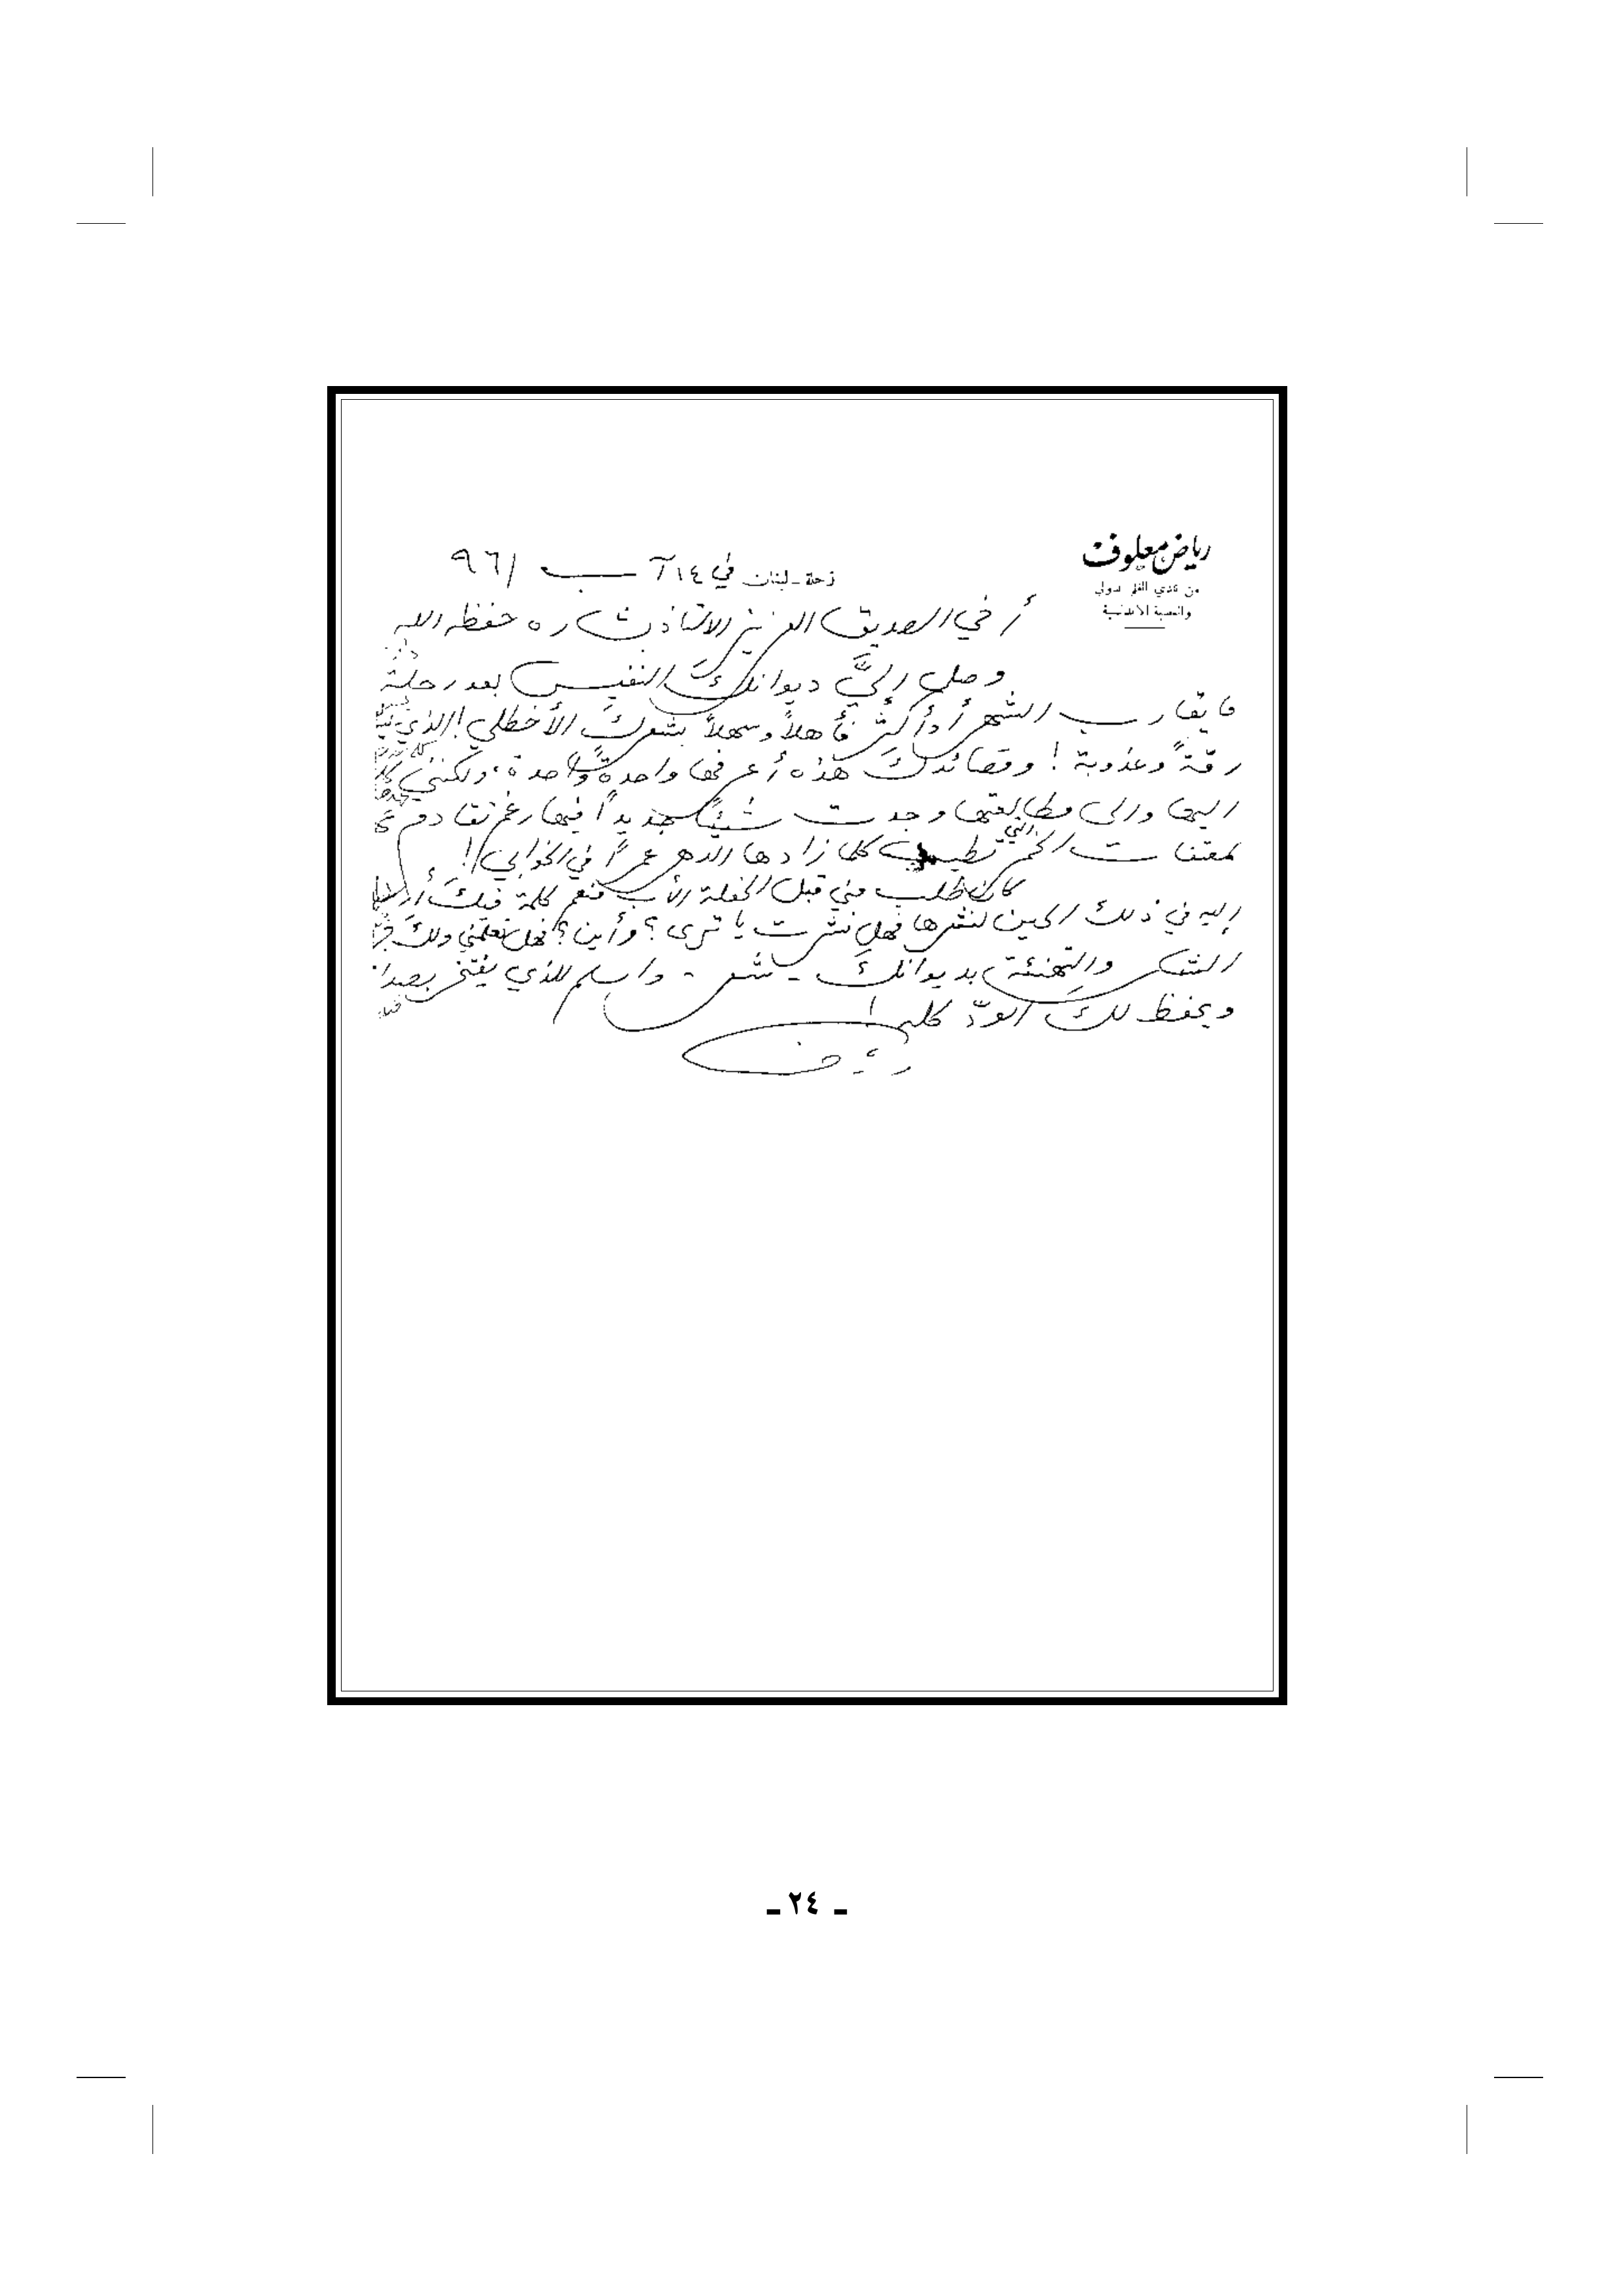 رياض معلوف
من نادي القلم الدولي
والعصبة الأندلسية
زحلة - لبنان في ١٤ آب ٩٦١
أخي الصديق العزيز الأستاذ شاره حفظه الله
وصلني إليَّ ديوانكَ النفيس بعد رحلة
ما يقارب الشهر أو أكثر فأهلاً وسهلاً بشعركَ الأخطلي! الذي
رقةً وعذوبة! وقصائدكَ هذه أعرفها واحدةً واحدة، ولكنني كلما
اليها والى مطالعتها وجدت شيئاً جديداً فيها رغم تقادم
كمعتقات الخمر التي تطيب كلما زادها الدهر عمراً في الخوابي!
كان طلب مني قبل الحفلة الأب منعم كلمة فيكَ أرسلتها
إليه في ذلك الحين لنشرها فهل نشرت يا ترى؟ وأين؟ فهل تعلمني ولكَ
الشكر والتهنئة بديوانكَ - شعر - واسلم للذي يفتخر
ويحفظ لكَ الودّ كله!
رياض
- ٢٤ -